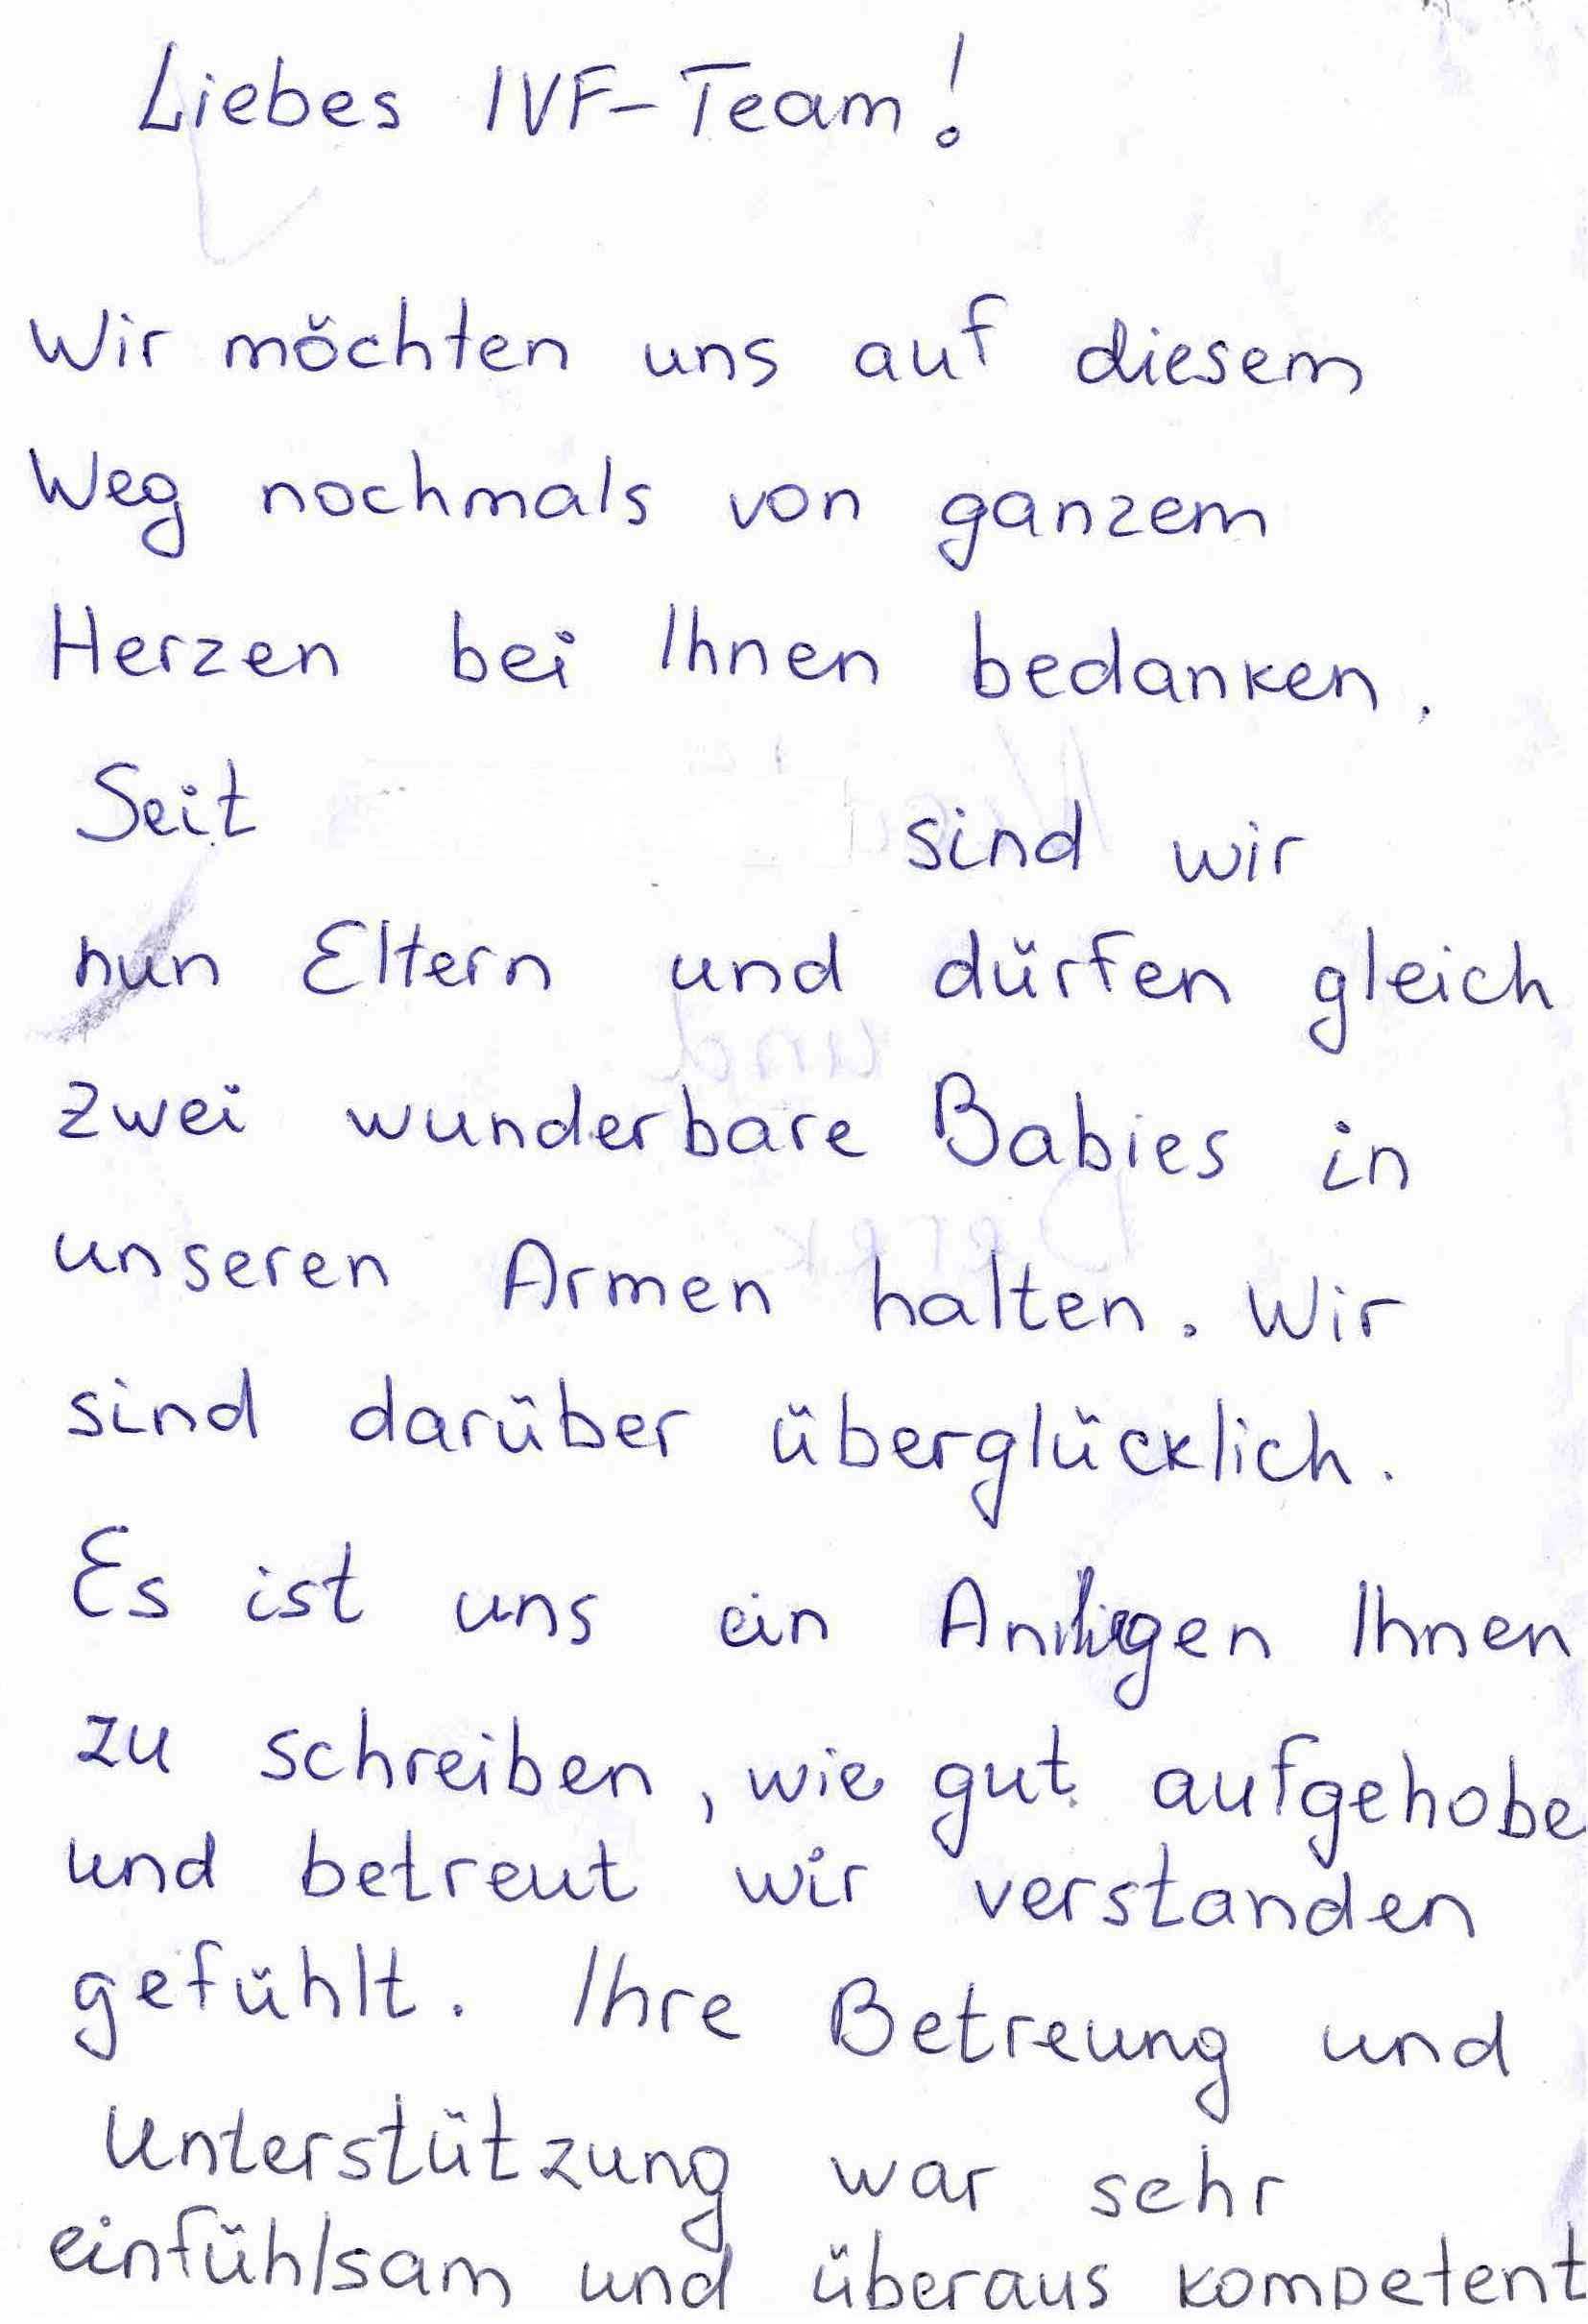 Liebes IVF-Team!
Wir möchten uns auf diesem
Weg nochmals von ganzem
Herzen bei Ihnen bedanken.
Seit sind wir
nun Eltern und dürfen gleich
zwei wunderbare Babies in
unseren Armen halten. Wir
sind darüber überglücklich.
Es ist uns ein Anliegen Ihnen
zu schreiben, wie gut aufgehobe
und betreut wir verstanden
gefühlt. Ihre Betreung und
Unterstützung war sehr
einfühlsam und überaus kompetent